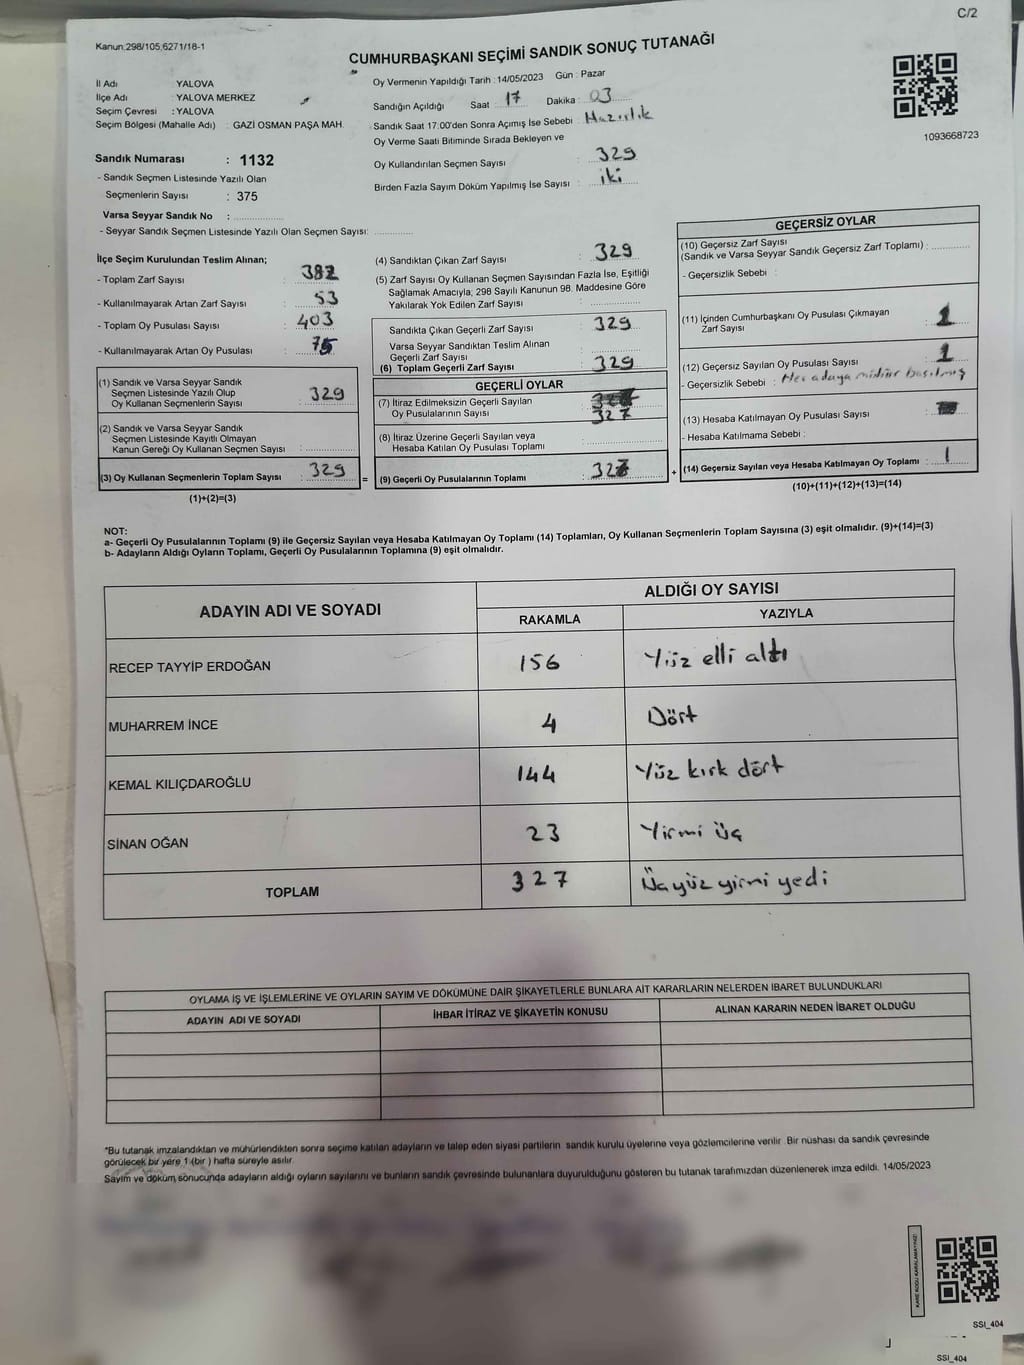 C/2
Kanun:298/105,6271/18-1
CUMHURBAŞKANI SEÇİMİ SANDIK SONUÇ TUTANAĞI
İl Adı YALOVA
İlçe Adı : YALOVA MERKEZ
Seçim Çevresi : YALOVA
Seçim Bölgesi (Mahalle Adı) : GAZİ OSMAN PAŞA MAH.
Oy Vermenin Yapıldığı Tarih : 14/05/2023 Gün : Pazar
Sandığın Açıldığı Saat 17 Dakika : 03
Sandık Saat 17:00'den Sonra Açılmış İse Sebebi : Hazırlık
Oy Verme Saati Bitiminde Sırada Bekleyen ve
Oy Kullandırılan Seçmen Sayısı : 329
Birden Fazla Sayım Döküm Yapılmış İse Sayısı : iki
1093668723
Sandık Numarası : 1132
- Sandık Seçmen Listesinde Yazılı Olan
Seçmenlerin Sayısı : 375
Varsa Seyyar Sandık No :
- Seyyar Sandık Seçmen Listesinde Yazılı Olan Seçmen Sayısı:
İlçe Seçim Kurulundan Teslim Alınan;
- Toplam Zarf Sayısı : 382
- Kullanılmayarak Artan Zarf Sayısı : 53
- Toplam Oy Pusulası Sayısı : 403
- Kullanılmayarak Artan Oy Pusulası : 75
(1) Sandık ve Varsa Seyyar Sandık
Seçmen Listesinde Yazılı Olup
Oy Kullanan Seçmenlerin Sayısı : 329
(2) Sandık ve Varsa Seyyar Sandık
Seçmen Listesinde Kayıtlı Olmayan
Kanun Gereği Oy Kullanan Seçmen Sayısı :
(3) Oy Kullanan Seçmenlerin Toplam Sayısı : 329
(1)+(2)=(3)
(4) Sandıktan Çıkan Zarf Sayısı : 329
(5) Zarf Sayısı Oy Kullanan Seçmen Sayısından Fazla İse, Eşitliği
Sağlamak Amacıyla; 298 Sayılı Kanunun 98. Maddesine Göre
Yakılarak Yok Edilen Zarf Sayısı :
Sandıkta Çıkan Geçerli Zarf Sayısı : 329
Varsa Seyyar Sandıktan Teslim Alınan
Geçerli Zarf Sayısı :
(6) Toplam Geçerli Zarf Sayısı : 329
GEÇERLİ OYLAR
(7) İtiraz Edilmeksizin Geçerli Sayılan
Oy Pusulalarının Sayısı : 327
(8) İtiraz Üzerine Geçerli Sayılan veya
Hesaba Katılan Oy Pusulası Toplamı :
= (9) Geçerli Oy Pusulalarının Toplamı :
GEÇERSİZ OYLAR
(10) Geçersiz Zarf Sayısı
(Sandık ve Varsa Seyyar Sandık Geçersiz Zarf Toplamı) :
- Geçersizlik Sebebi :
(11) İçinden Cumhurbaşkanı Oy Pusulası Çıkmayan
Zarf Sayısı : 1
(12) Geçersiz Sayılan Oy Pusulası Sayısı : 1
- Geçersizlik Sebebi : Her adaya mühür basılmış
(13) Hesaba Katılmayan Oy Pusulası Sayısı :
- Hesaba Katılmama Sebebi :
+ (14) Geçersiz Sayılan veya Hesaba Katılmayan Oy Toplamı : 1
(10)+(11)+(12)+(13)=(14)
NOT:
a- Geçerli Oy Pusulalarının Toplamı (9) ile Geçersiz Sayılan veya Hesaba Katılmayan Oy Toplamı (14) Toplamları, Oy Kullanan Seçmenlerin Toplam Sayısına (3) eşit olmalıdır. (9)+(14)=(3)
b- Adayların Aldığı Oyların Toplamı, Geçerli Oy Pusulalarının Toplamına (9) eşit olmalıdır.
ADAYIN ADI VE SOYADI ALDIĞI OY SAYISI
RAKAMLA YAZIYLA
RECEP TAYYİP ERDOĞAN 156 Yüz elli altı
MUHARREM İNCE 4 Dört
KEMAL KILIÇDAROĞLU 144 Yüz kırk dört
SİNAN OĞAN 23 Yirmi üç
TOPLAM 327 Üçyüz yirmi yedi
OYLAMA İŞ VE İŞLEMLERİNE VE OYLARIN SAYIM VE DÖKÜMÜNE DAİR ŞİKAYETLERLE BUNLARA AİT KARARLARIN NELERDEN İBARET BULUNDUKLARI
ADAYIN ADI VE SOYADI İHBAR İTİRAZ VE ŞİKAYETİN KONUSU ALINAN KARARIN NEDEN İBARET OLDUĞU
*Bu tutanak imzalandıktan ve mühürlendikten sonra seçime katılan adayların ve talep eden siyasi partilerin sandık kurulu üyelerine veya gözlemcilerine verilir. Bir nüshası da sandık çevresinde
görülecek bir yere 1 (bir) hafta süreyle asılır.
Sayım ve döküm sonucunda adayların aldığı oyların sayılarını ve bunların sandık çevresinde bulunanlara duyurulduğunu gösteren bu tutanak tarafımızdan düzenlenerek imza edildi. 14/05/2023
KARE KODU KARALAMAYINIZ!
SSI_404
SSI_404